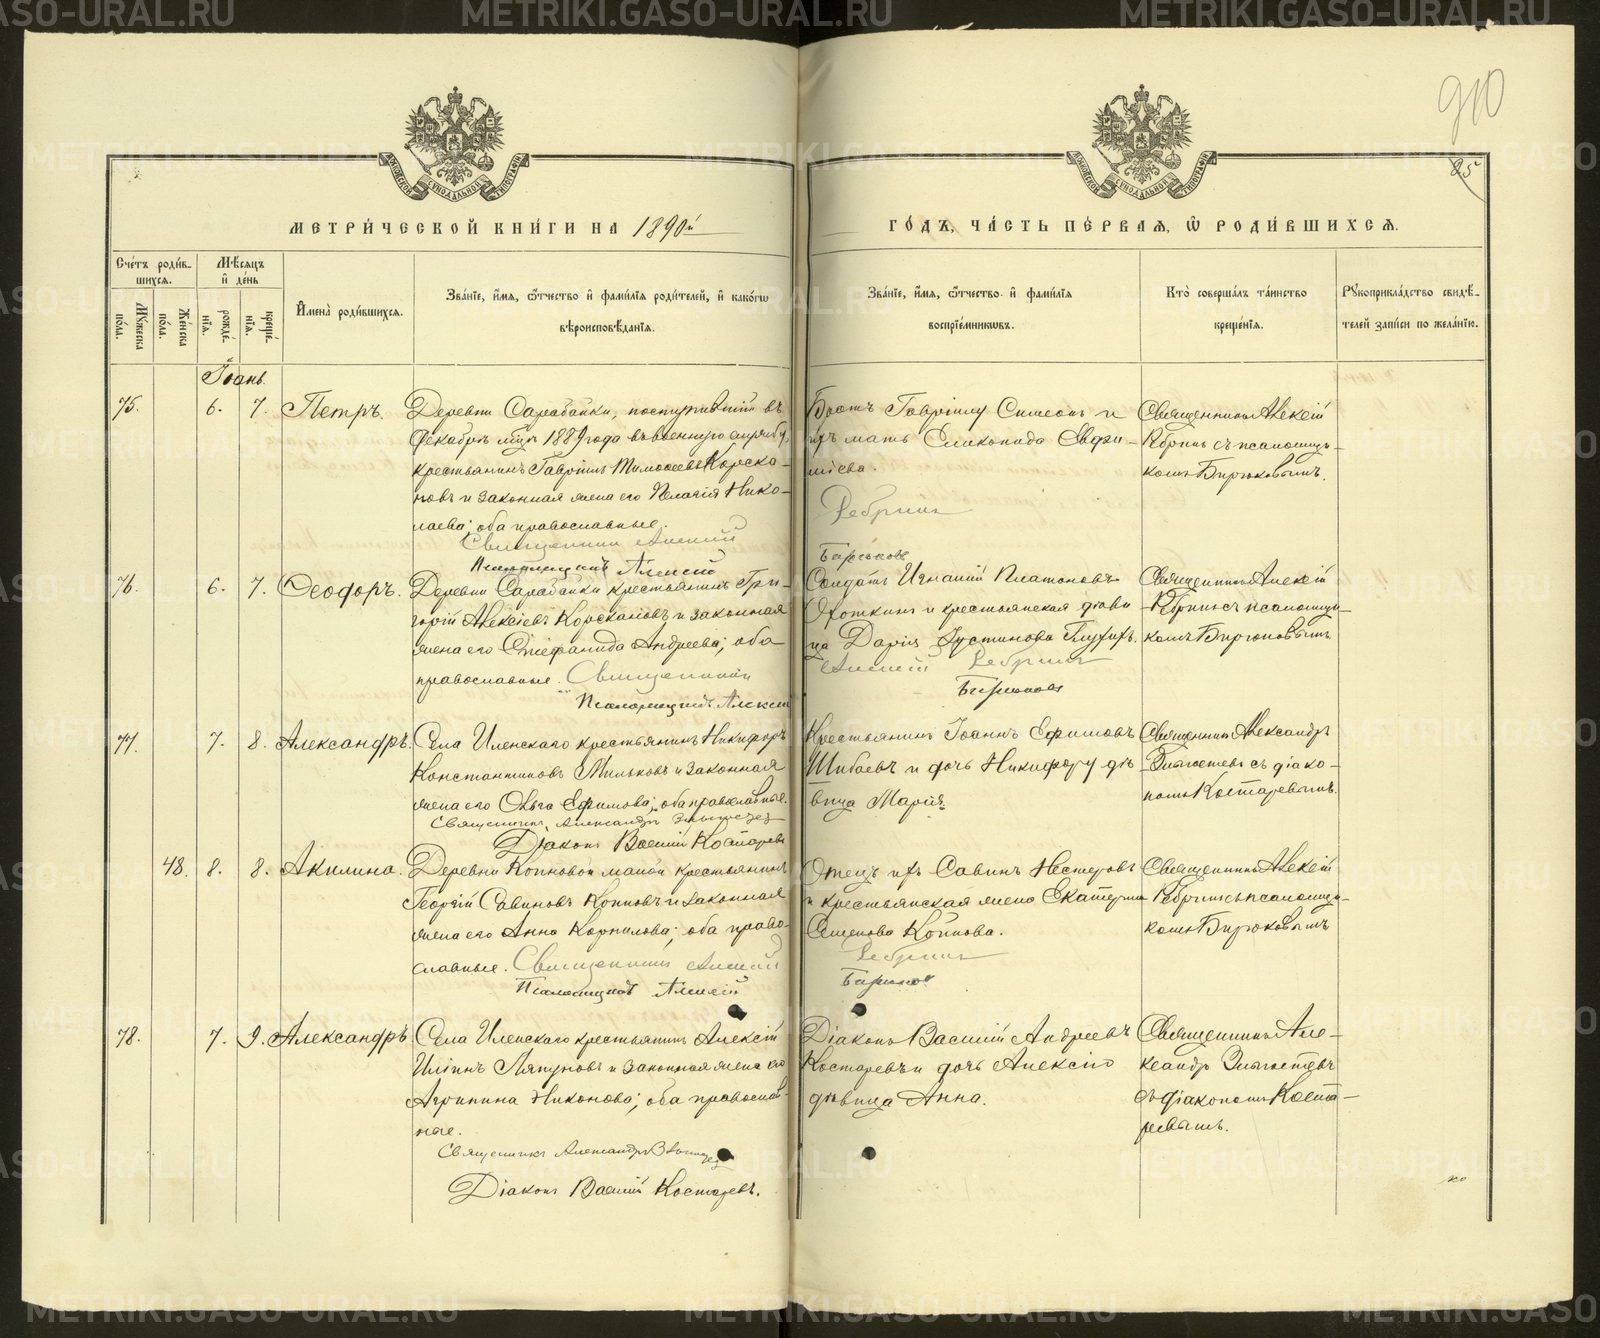 METRIKI.GASO-URAL.RU
910
25
МЕТРИ́ЧЕСКОЙ КНИ́ГИ НА 1890й
ГО́ДЪ, ЧА́СТЬ ПЕ́РВАѦ, Ѿ РОДИ́ВШИХСѦ.
Сче́тъ роди́в-
шихсѧ.
Мꙋ́жеска по́ла.
Же́нска по́ла.
Мѣ́сѧцъ и҆ де́нь
рожде́-нїѧ.
креще́-нїѧ.
И҆мена̀ роди́вшихсѧ.
Зва́нїе, и҆́мѧ, ѻ҆́тчество и҆ фами́лїѧ роди́телей, и҆ како́гѡ
вѣроисповѣ́данїѧ.
Зва́нїе, и҆́мѧ, ѻ҆́тчество и҆ фами́лїѧ
воспрїе́мникѡвъ.
Кто̀ соверша́лъ та́инство
креще́нїѧ.
Рꙋкоприкла́дство свидѣ́-
телей за́писи по жела́нїю.
Іюнь.
75.
6. 7.
Петръ.
Деревни Сарабайки, поступившій въ
Декабрѣ мцѣ 1889 года въ военную службу,
крестьянинъ Гавріилъ Тимоѳеевъ Корска-
новъ и законная жена его Пелагія Нико-
лаева; оба православные.
Священникъ Алексій
Псаломщикъ Алексій
Братъ Гавріилу Симеонъ и
ихъ мать Евфи-
міева.
Ребринъ
Бирюковъ
Священникъ Алексій
Ребринъ съ псаломщи-
комъ Бирюковымъ.
76.
6. 7.
Ѳеодоръ.
Деревни Сарабайки крестьянинъ Гри-
горій Алексіевъ Корскановъ и законная
жена его Стефанида Андреева; оба
православные. Священникъ
Псаломщикъ Алексій
Солдатъ Игнатій Платоновъ
Охоткинъ и крестьянская дѣви
ца Дарія Іустинова Глухихъ.
Алексій Ребринъ
Бирюковъ
Священникъ Алексій
Ребринъ съ псаломщи-
комъ Бирюковымъ
77.
7. 8.
Александръ.
Села Иленскаго крестьянинъ Никифоръ
Константиновъ Мильковъ и законная
жена его Ольга Ефимова; оба православные.
Священникъ Александръ
Діаконъ Василій Костаревъ
Крестьянинъ Іоаннъ Ефимовъ
Шибаевъ и дочь Никифору дѣ
вица Марія.
Священникъ Александръ
съ діако-
номъ Костаревымъ.
48.
8. 8.
Акилина.
Деревни Копновой малой крестьянинъ
Георгій Савиновъ Копновъ и законная
жена его Анна Корнилова; оба право-
славные. Священникъ Алексій
Псаломщикъ Алексій
Отецъ ихъ Савинъ Нестеровъ
и крестьянская жена Екатерина
Семенова Копнова.
Ребринъ
Бирюковъ
Священникъ Алексій
Ребринъ съ псаломщи-
комъ Бирюковымъ
78.
7. 9.
Александръ
Села Иленскаго крестьянинъ Алексій
Иліинъ Ляпуновъ и законная жена его
Агрипина Никонова; оба православ-
ные.
Священникъ Александръ
Діаконъ Василій Костаревъ.
Діаконъ Василій Андреевъ
Костаревъ и дочь Алексію
дѣвица Анна.
Священникъ Але-
ксандръ
съ діакономъ Коста-
ревымъ.